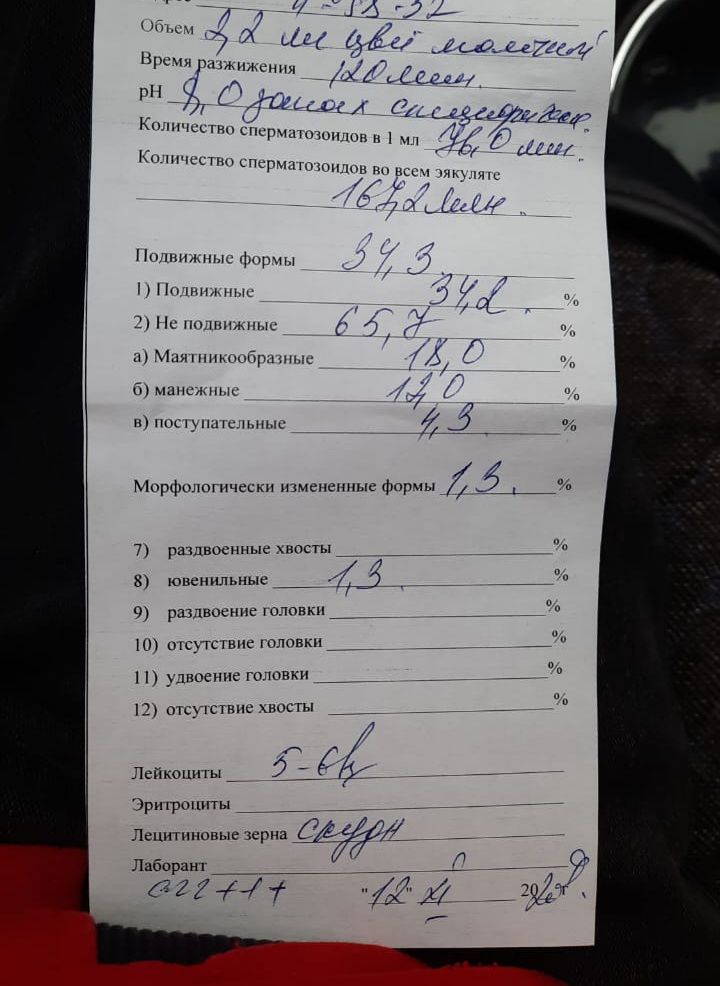 Объем 2,2 мл цвет молочный
Время разжижения 120 мин.
pH 8,0 запах специфичен.
Количество сперматозоидов в 1 мл 76,0 млн.
Количество сперматозоидов во всем эякуляте
167,2 млн.
Подвижные формы 34,3
1) Подвижные 34,2. %
2) Не подвижные 65,7 %
а) Маятникообразные 18,0 %
б) манежные 12,0 %
в) поступательные 4,3 %
Морфологически измененные формы 1,3. %
7) раздвоенные хвосты %
8) ювенильные 1,3. %
9) раздвоение головки %
10) отсутствие головки %
11) удвоение головки %
12) отсутствие хвосты %
Лейкоциты 5-6
Эритроциты
Лецитиновые зерна скудн
Лаборант
"12" 20 г.